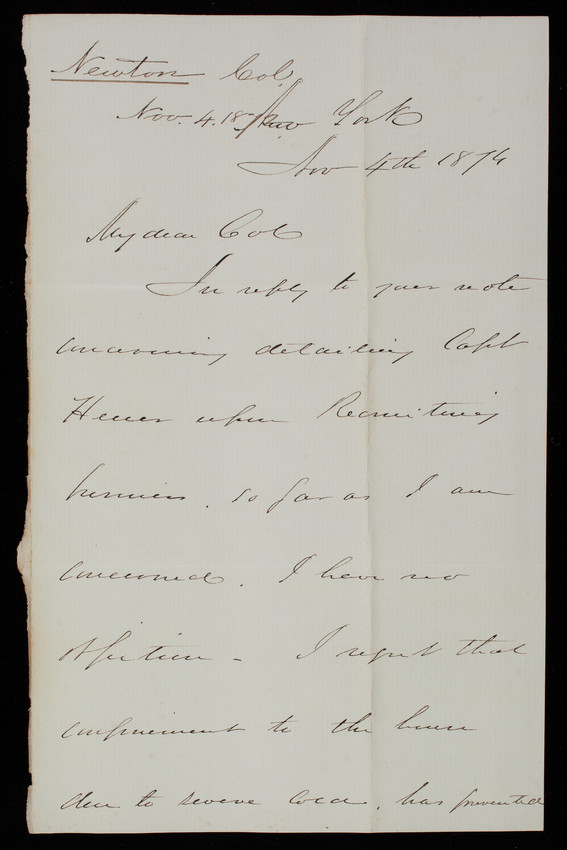 Newton Col.
Nov. 4. 187
New York
Nov 4th 1874
My dear Col
In reply to your note
concerning detailing Capt
Heuer upon Recruiting
service, so far as I am
concerned. I have no
objection - I regret that
confinement to the house
due to severe cold, has prevented